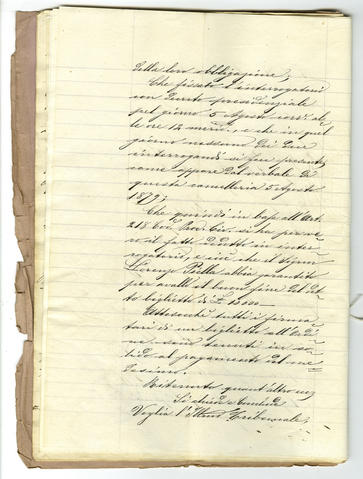 della loro obbligazione;
Che fissato l'interrogatorio
con Decreto presidenziale
pel giorno 5 Agosto corr. al-
le ore 12 merid., e che in quel
giorno nessuno dei due
interrogandi si fece presente
come appare dal verbale di
questa cancelleria 5 Agosto
1879;
Che quindi in base all'Art.
218 Cod. Proc. Civ. si ha per ve-
ro il fatto dedotto in inter-
rogatorio, e cioè che il Signor
Lorenzo Biella abbia garantito
per avallo il buon fine del det-
to biglietto di £ 15000
Attesoché tutti i firma-
tari di un biglietto all'Ordi-
ne sono tenuti in so-
lido al pagamento del me-
desimo;
Ritenuto quant'altro
Si chiede e conclude
Voglia l'Ill.mo Tribunale,